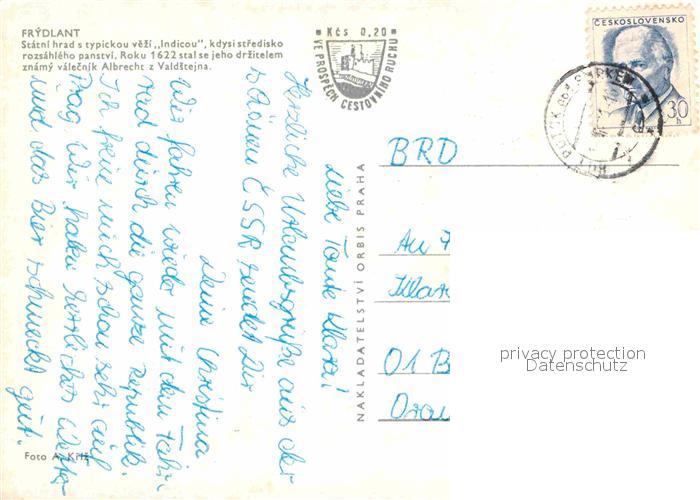 FRÝDLANT
Státní hrad s typickou věží „Indicou", kdysi středisko
rozsáhlého panství. Roku 1622 stal se jeho držitelem
známý válečník Albrecht z Valdštejna.
Kčs 0,20
VE PROSPĚCH CESTOVNÍHO RUCHU
ČESKOSLOVENSKO
30 h
Liebe Tante Klara!
Herzliche Urlaubsgrüße aus der
schönen ČSSR sendet Dir
Deine Christina
Wir fahren wieder mit dem Fahr-
rad durch die ganze Republik.
Ich freue mich schon sehr auf
Prag. Wir haben herrliches Wetter
und das Bier schmeckt gut.
NAKLADATELSTVÍ ORBIS PRAHA
BRD
An
Klar
01 B
Oran
privacy protection
Datenschutz
Foto A. Kříž